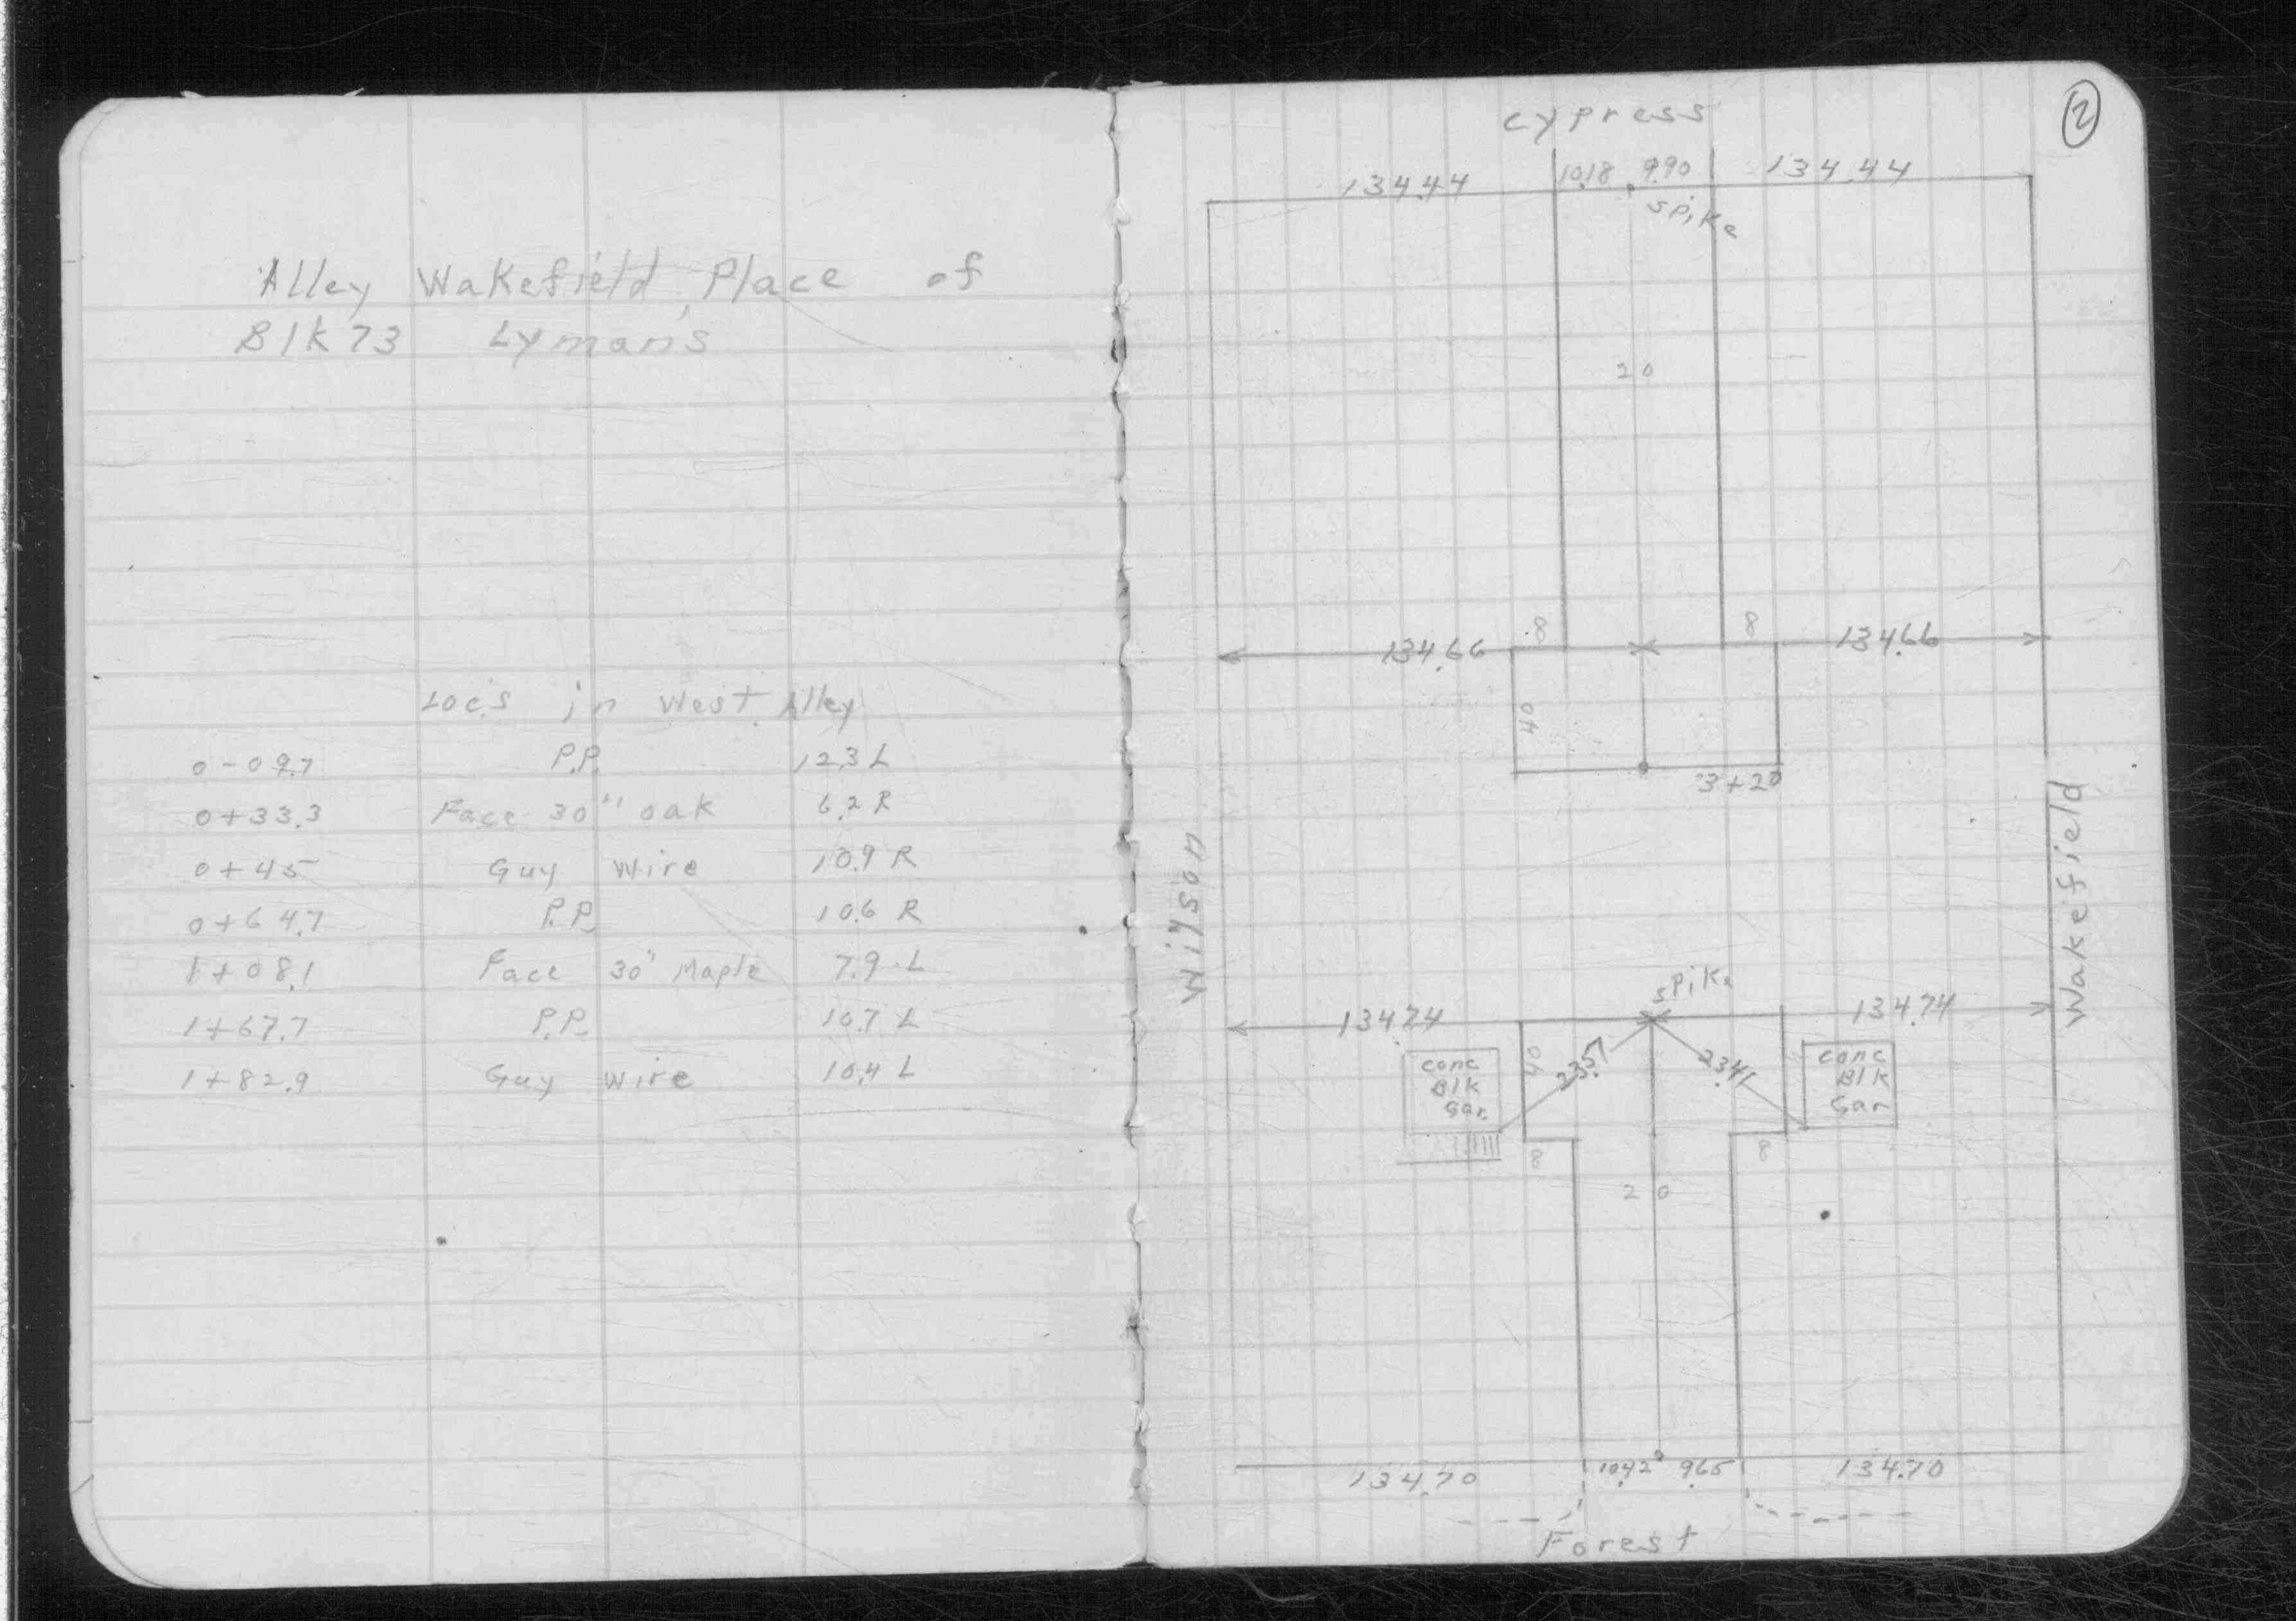 Alley Wakefield Place of
Blk 73 Lyman's
Loc's in West Alley
0-09.7 P.P. 12.3 L
0+33.3 Face 30" oak 6.2 R
0+45 Guy Wire 10.9 R
0+64.7 P.P. 10.6 R
1+08.1 Face 30" Maple 7.9 L
1+67.7 P.P. 10.7 L
1+82.9 Guy Wire 10.4 L
2
Cypress
134.44 10.18 9.90 134.44
Spike
20
8 8
134.66 134.66
40
3+20
Wilson
Wakefield
Spike
134.74 134.74
40 23.57 23.41
Conc
Blk
Gar.
Conc
Blk
Gar
8 8
20
134.70 10.42 9.65 134.70
Forest